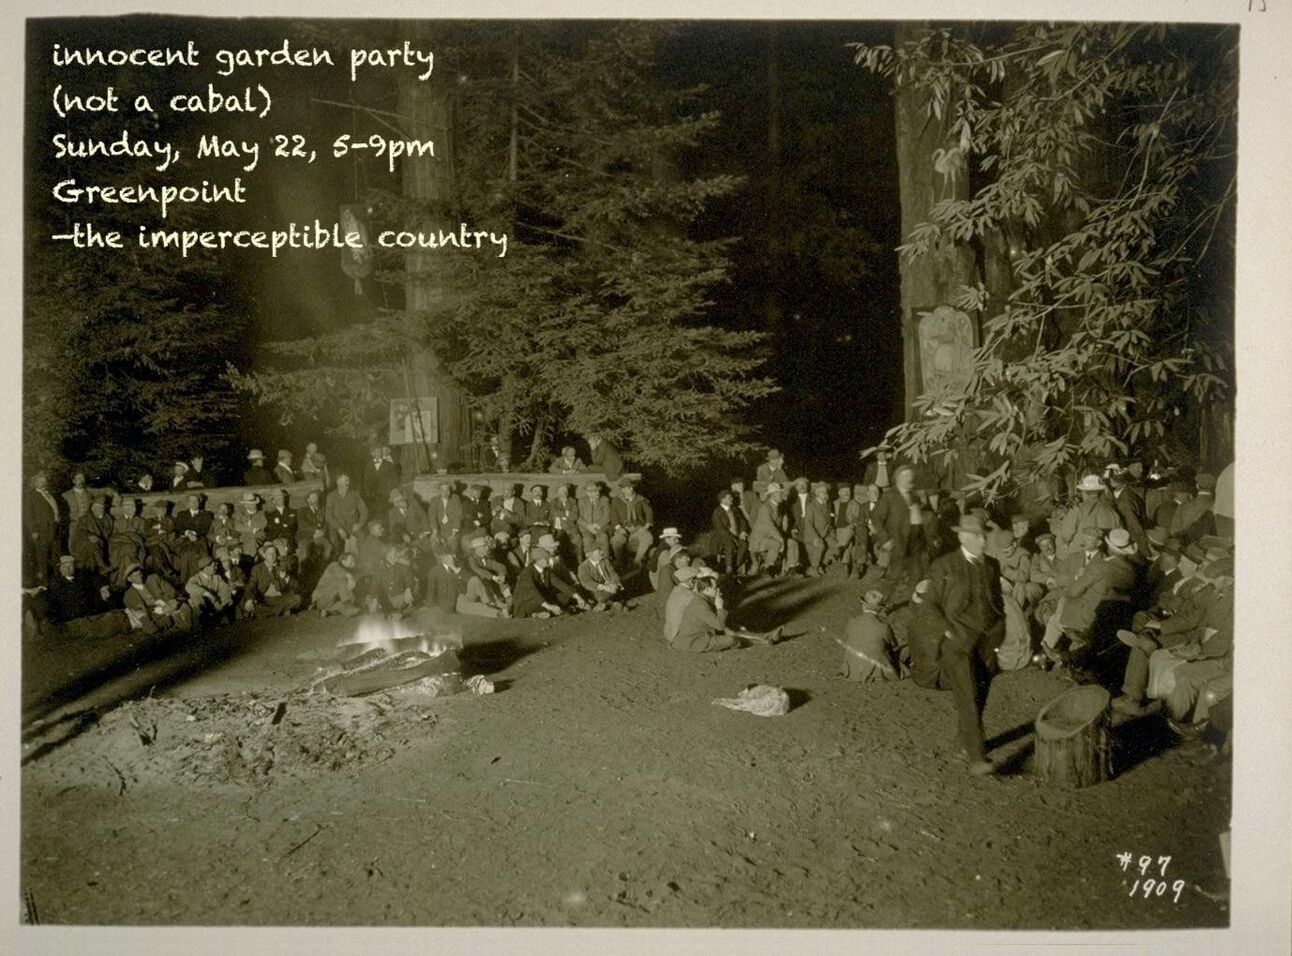 innocent garden party
(not a cabal)
Sunday, May 22, 5-9pm
Greenpoint
—the imperceptible country
#97
1909